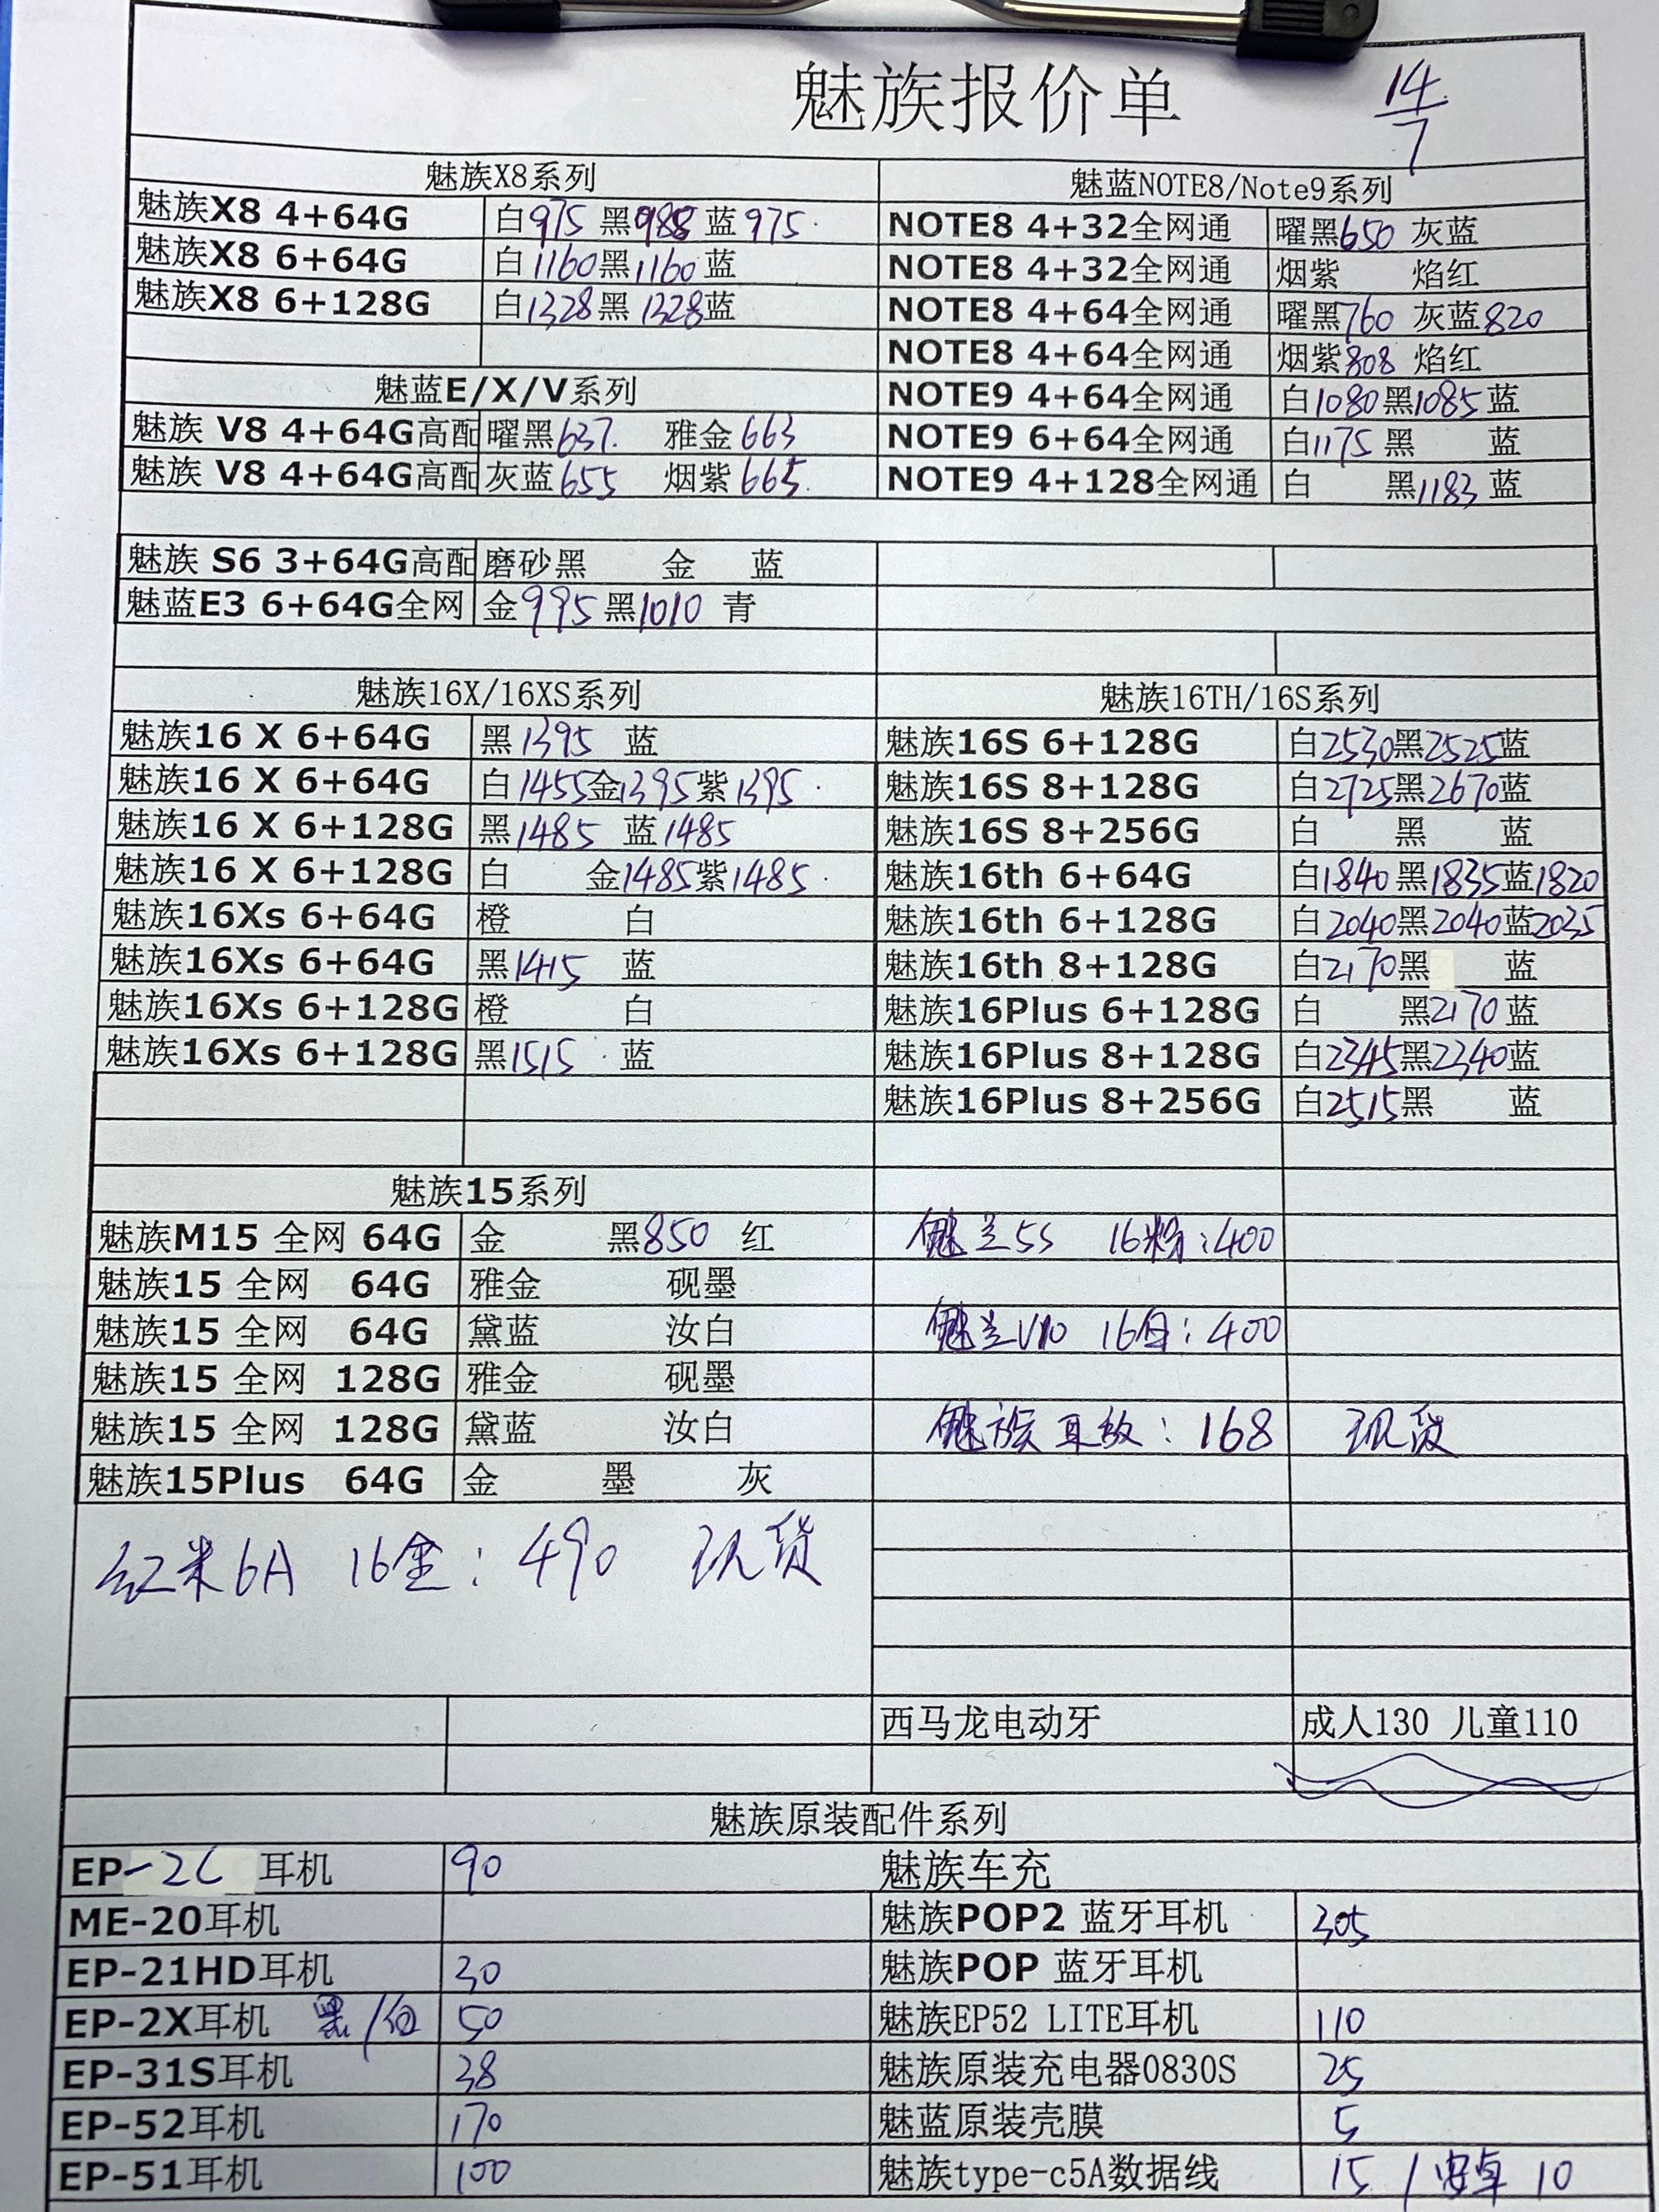 魅族报价单 14/7
魅族X8系列
魅族X8 4+64G 白975 黑988 蓝975
魅族X8 6+64G 白1160黑1160蓝
魅族X8 6+128G 白1328黑1328蓝
魅蓝E/X/V系列
魅族 V8 4+64G高配 曜黑637. 雅金663
魅族 V8 4+64G高配 灰蓝655 烟紫665.
魅族 S6 3+64G高配 磨砂黑 金 蓝
魅蓝E3 6+64G全网 金995黑1010 青
魅蓝NOTE8/Note9系列
NOTE8 4+32全网通 曜黑650 灰蓝
NOTE8 4+32全网通 烟紫 焰红
NOTE8 4+64全网通 曜黑760 灰蓝820
NOTE8 4+64全网通 烟紫808 焰红
NOTE9 4+64全网通 白1080黑1085蓝
NOTE9 6+64全网通 白1175黑 蓝
NOTE9 4+128全网通 白 黑1183蓝
魅族16X/16XS系列
魅族16 X 6+64G 黑1395 蓝
魅族16 X 6+64G 白1455金1395紫1395
魅族16 X 6+128G 黑1485 蓝1485
魅族16 X 6+128G 白 金1485紫1485
魅族16Xs 6+64G 橙 白
魅族16Xs 6+64G 黑1415 蓝
魅族16Xs 6+128G 橙 白
魅族16Xs 6+128G 黑1515 蓝
魅族16TH/16S系列
魅族16S 6+128G 白2530黑2525蓝
魅族16S 8+128G 白2725黑2670蓝
魅族16S 8+256G 白 黑 蓝
魅族16th 6+64G 白1840黑1835蓝1820
魅族16th 6+128G 白2040黑2040蓝2035
魅族16th 8+128G 白2170黑 蓝
魅族16Plus 6+128G 白 黑2170蓝
魅族16Plus 8+128G 白2345黑2340蓝
魅族16Plus 8+256G 白2515黑 蓝
魅族15系列
魅族M15 全网 64G 金 黑850 红
魅族15 全网 64G 雅金 砚墨
魅族15 全网 64G 黛蓝 汝白
魅族15 全网 128G 雅金 砚墨
魅族15 全网 128G 黛蓝 汝白
魅族15Plus 64G 金 墨 灰
魅兰5S 16粉:400
魅兰V10 16白:400
魅族耳放:168 现货
红米6A 16金:490 现货
西马龙电动牙 成人130 儿童110
魅族原装配件系列
EP-2C 耳机 90 魅族车充
ME-20耳机 魅族POP2 蓝牙耳机 305
EP-21HD耳机 30 魅族POP 蓝牙耳机
EP-2X耳机 黑/白 50 魅族EP52 LITE耳机 110
EP-31S耳机 38 魅族原装充电器0830S 25
EP-52耳机 170 魅蓝原装壳膜 5
EP-51耳机 100 魅族type-c5A数据线 15 / 安卓 10